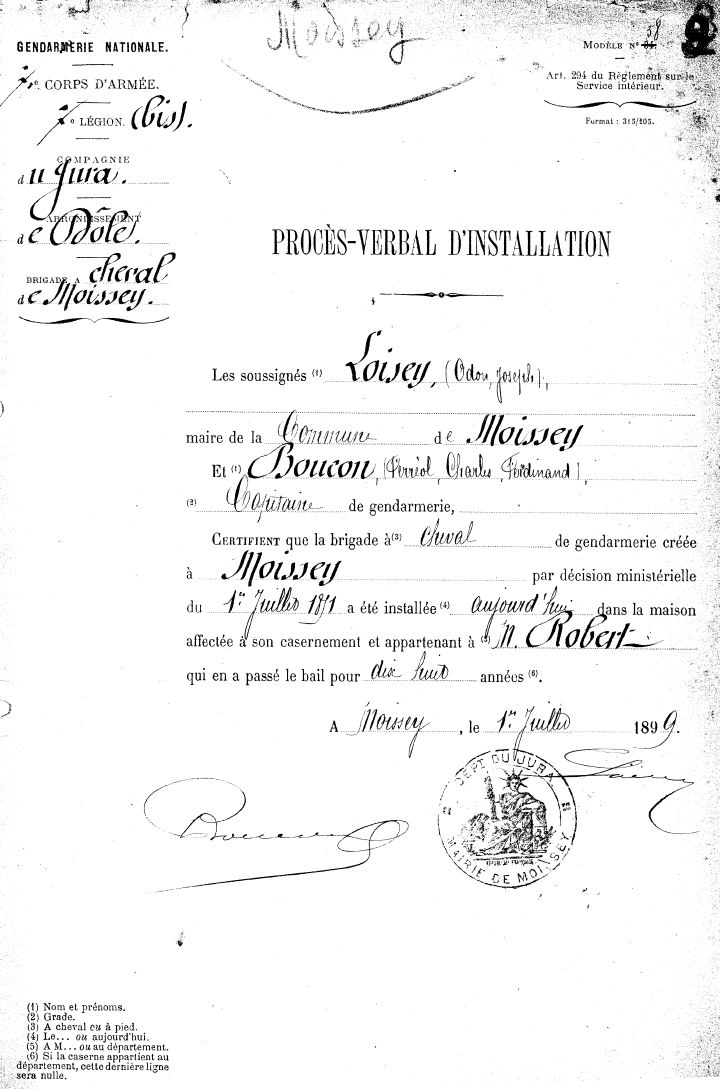 Moissey
GENDARMERIE NATIONALE.
7e CORPS D'ARMÉE.
7e LÉGION. (bis).
COMPAGNIE
du Jura.
ARRONDISSEMENT
de Dôle.
BRIGADE A cheval
de Moissey.
58
MODÈLE N° 34.
Art. 294 du Règlement sur le
Service intérieur.
Format : 315/205.
PROCÈS-VERBAL D'INSTALLATION
Les soussignés (1) Loisey, (Odon, Joseph),
maire de la Commune de Moissey
Et (1) Boucon, (Ferréol, Charles, Ferdinand),
(2) Capitaine de gendarmerie,
CERTIFIENT que la brigade à (3) cheval de gendarmerie créée
à Moissey par décision ministérielle
du 1er Juillet 1871 a été installée (4) aujourd'hui dans la maison
affectée à son casernement et appartenant à (5) M. Robert
qui en a passé le bail pour dix huit années (6).
A Moissey, le 1er Juillet 1899.
DÉPT DU JURA
MAIRIE DE MOISSEY
Boucon
Loisey
(1) Nom et prénoms.
(2) Grade.
(3) A cheval ou à pied.
(4) Le... ou aujourd'hui.
(5) A M... ou au département.
(6) Si la caserne appartient au
département, cette dernière ligne
sera nulle.